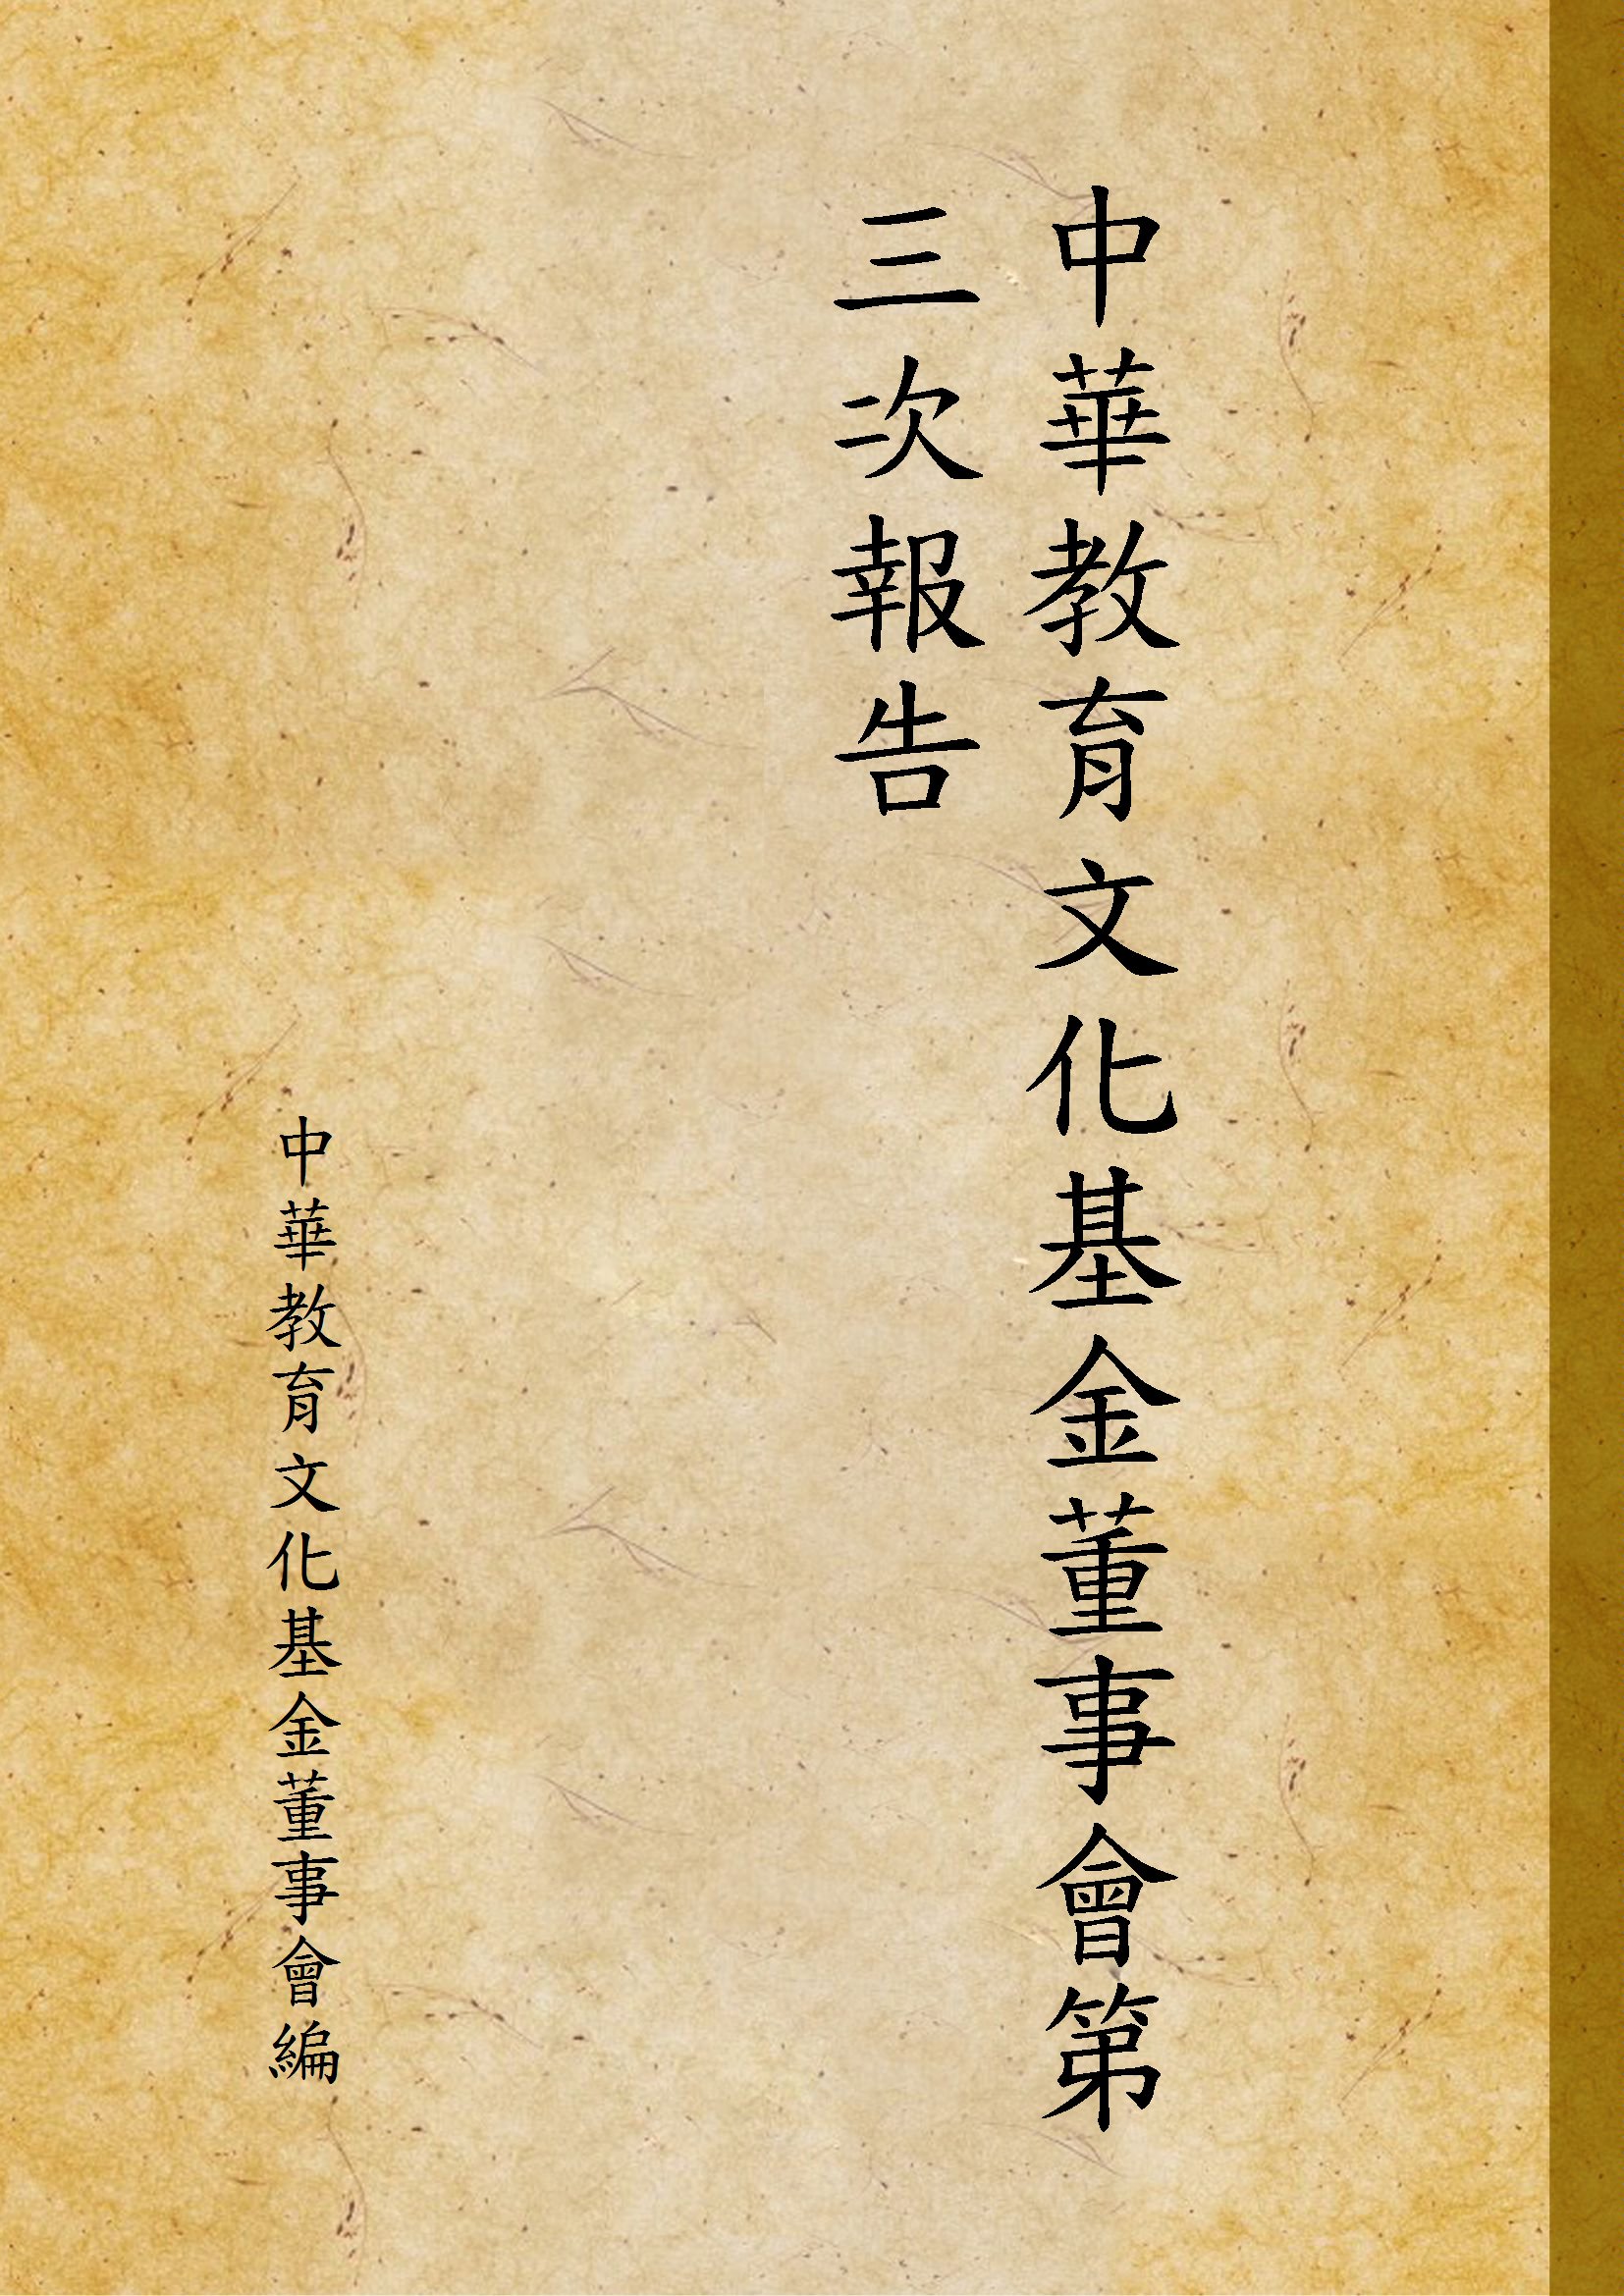 中華教育文化基金董事會第
三次報告
中華教育文化基金董事會編